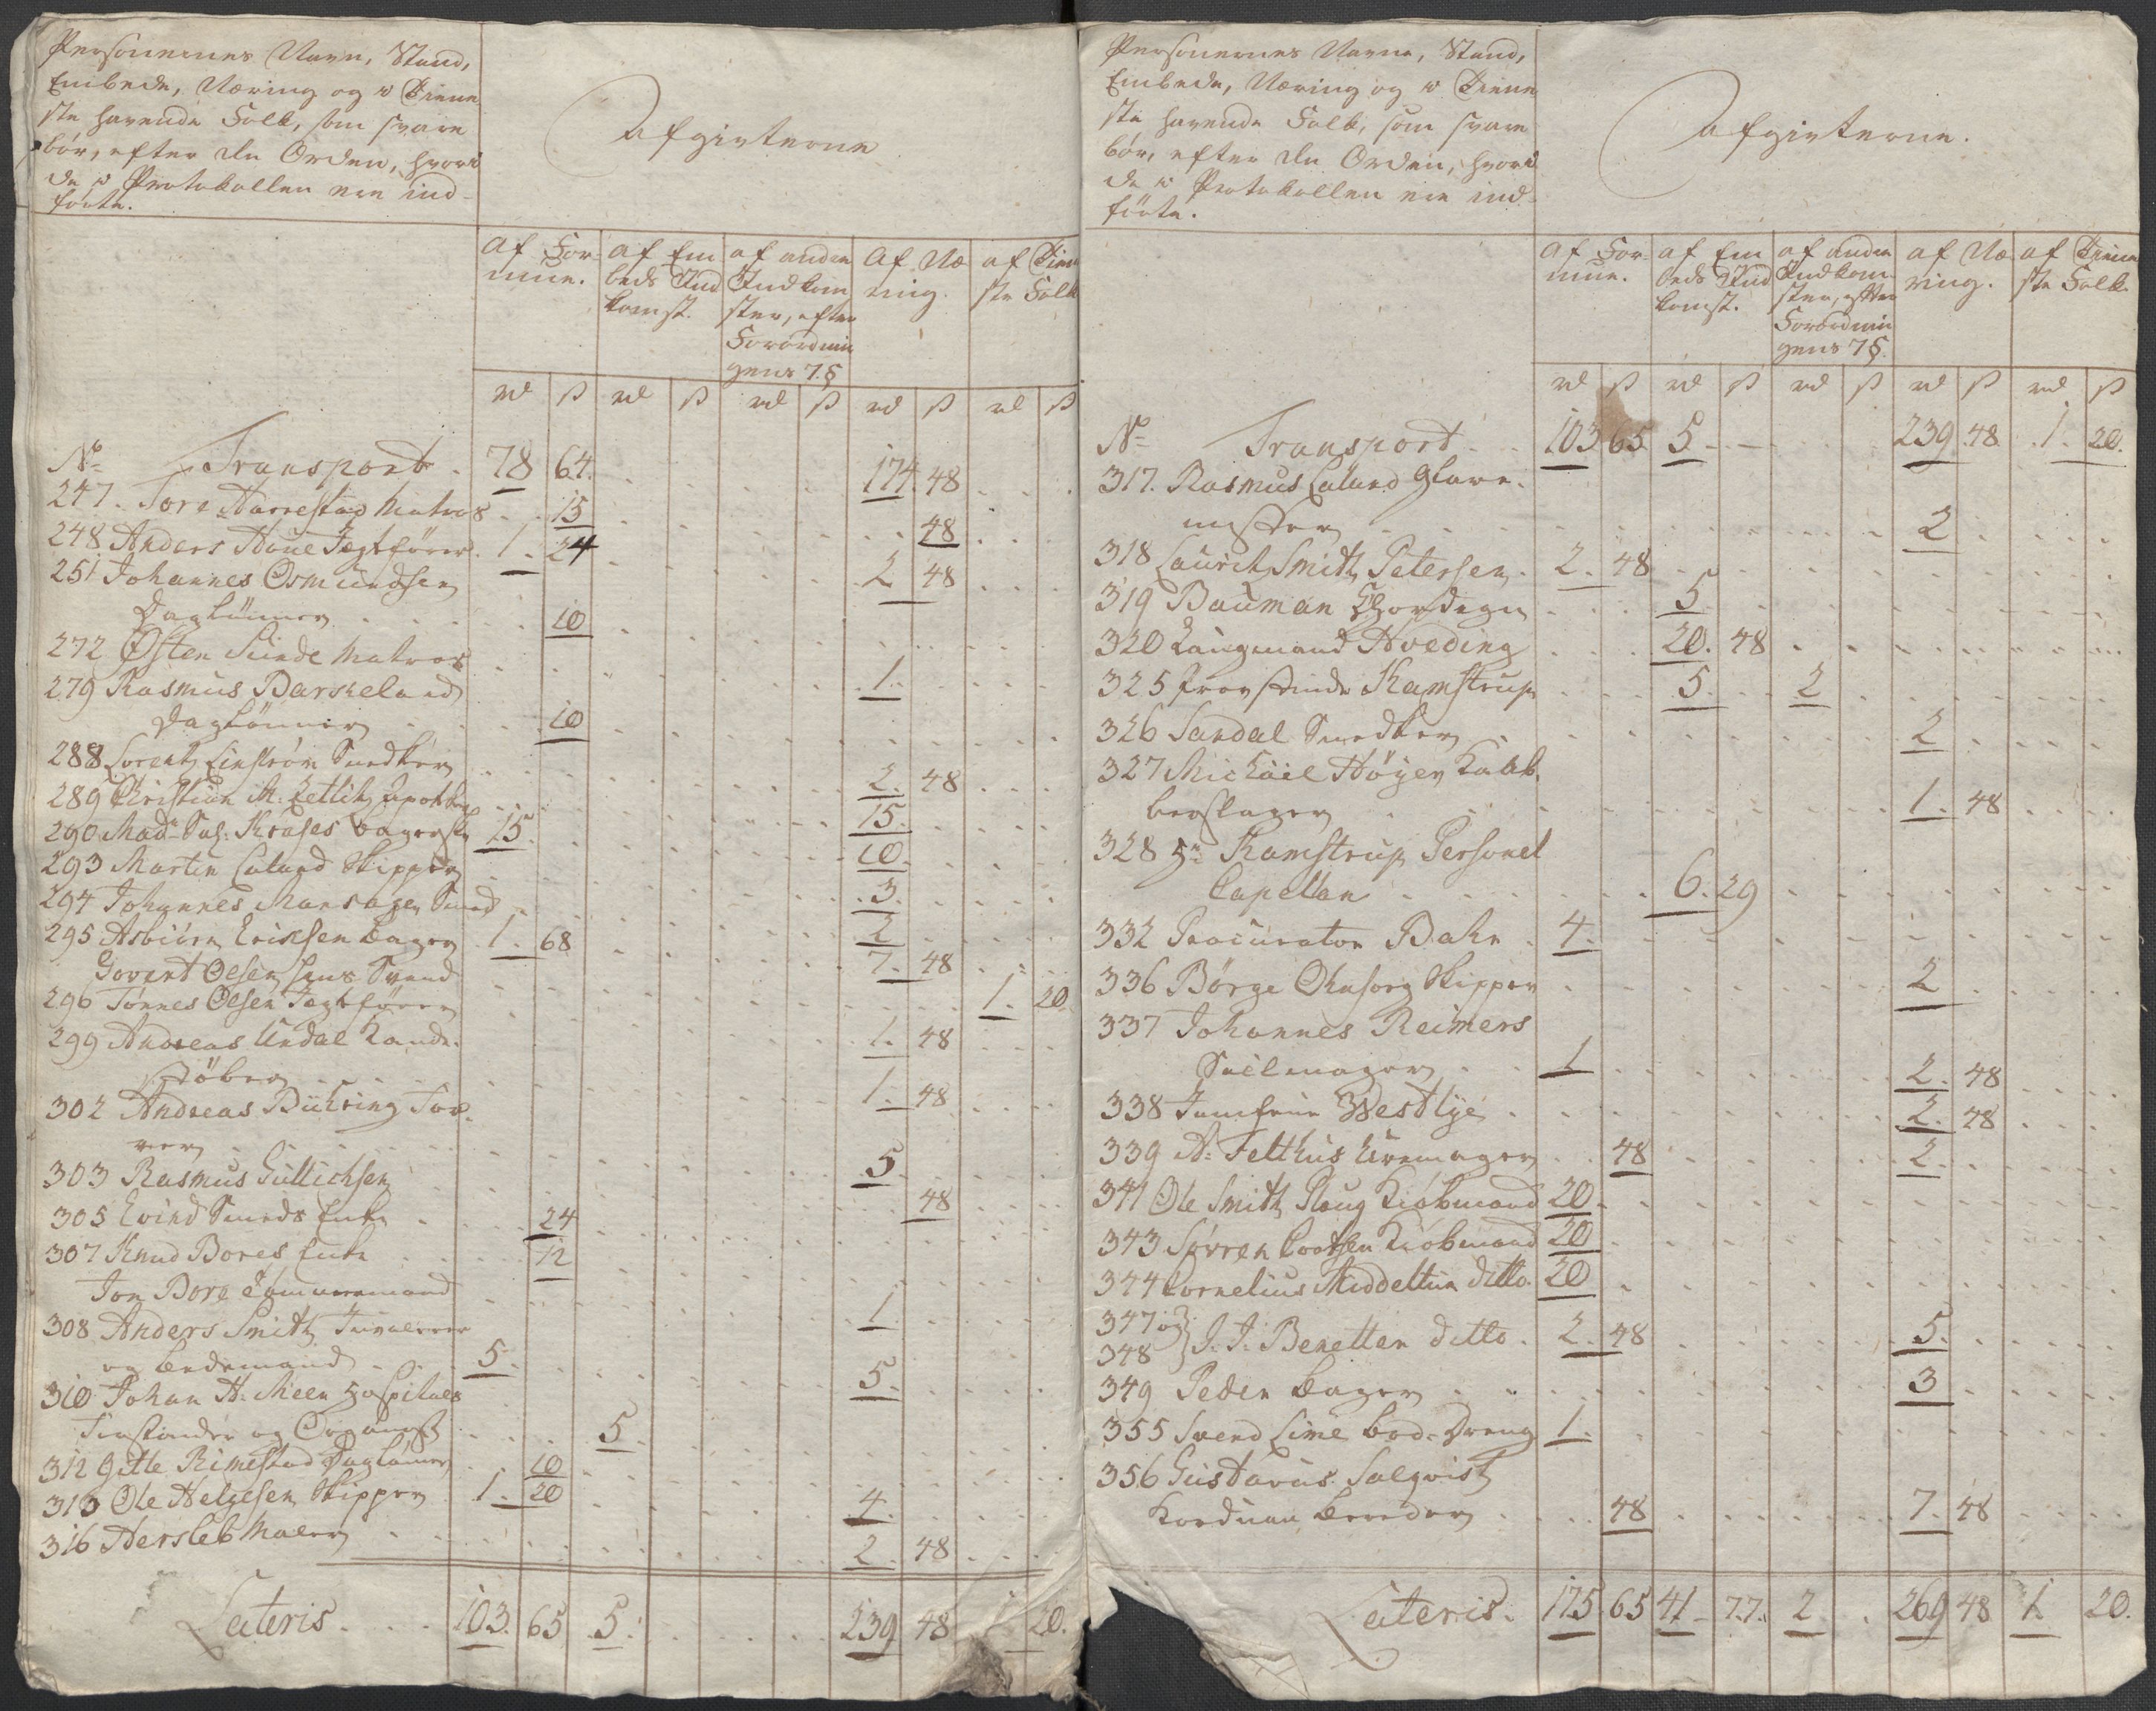 Personernes Navn, Stand,
Embede, Næring og i Tiene
ste havende Folk, som svare
bør, efter den Orden, hvori
de i Protokollen ere ind-
førte.
Afgivterne
Af For-
mue.
af Em
beds Ind
komst.
af anden
Indkom
ster, efter
Forordnin
gens 7.§
Af Næ
ring.
af Tiene
ste Folk
rd ß rd ß rd ß rd ß rd ß
No Transport 78 64. 174. 48
247. Tore Harrestad Matros 15 48
248 Anders Haue Jegtfører. 1. 24 2 48
251 Johannes Osmundsen
Daglønner 10
272 Østen Sunde Matros 1.
279 Rasmus Barkeland
Daglönner 10
288 Lorentz Linström Snedker 2. 48
289 Christian M. Zetlitz Apotheker 15.
290 Mad. Sal. Kruses Bagerske 15. 10.
293 Martin Lalund Skipper 3.
294 Johannes Marsager Smed 2
295 Asbiörn Erichsen Bager 1. 68 7. 48
Govert Olsen hans Svend 1. 20
296 Tönnes Olsen Jegtfører 1. 48
299 Andreas Undal Kande-
støber 1. 48
302 Andreas Bühring Far-
ver 5.
303 Rasmus Gullichsen 48
305 Evind Smeds Enke 24
307 Knud Bores Enke 12
Jon Bore Tömmermand 1
308 Anders Smith Juvelerer
og Bedemand 5. 5.
310 Johan H. Meen Hospitals
Forstander og Organist 5.
312 Gitle Rimestad Daglönner 10
313 Ole Helgesen Skipper 1. 20 4.
316 Hersleb Maler 2. 48
Lateris 103. 65 5. 239 48 1 20.
Personernes Navne, Stand,
Embede, Næring og i Tiene
ste havende Folk, som svare
bør, efter den Orden, hvori
de i Protokollen ere ind-
førte.
Afgivterne.
Af For-
mue.
af Em
beds Ind
komst.
af anden
Indkom-
ster, efter
Forordnin
gens 7§.
af Næ
ring.
af Tiene
ste Folk.
rd ß rd ß rd ß rd ß rd ß
No Transport 103 65 5 239 48 1. 20.
317. Rasmus Laland Glare-
mester 2
318 Lauritz Smith Petersen 2. 48
319 Bauman Chordegn 5
320 Laugmand Hveding 20. 48
325 Provstinde Kamstrup 5. 2
326 Sandal Snedker 2
327 Michael Höyer Kaab-
berslager 1. 48
328 Hr Kamstrup Personel
Capellan 6. 29
332 Procurator Bahr 4.
336 Börge Ohnsorg Skipper 2
337 Johannes Reimers
Seilmager 1 2. 48
338 Jumfrue Westlye 2. 48
339 A. Felthus Uremager 48 2.
341 Ole Smith Ploug Kiöbmand 20
343 Sören Lootsen Kiöbmand 20
344 Cornelius Middeltun ditto. 20
347 og
348 } J. J. Benetter ditto. 2. 48 5.
349 Peder Bager 3
355 Svend Lime Bod-Dreng 1.
356 Gustavus Salqvist
Korduan Bereder 48 7. 48
Lateris. 175 65 41 77. 2 269 48 1. 20.